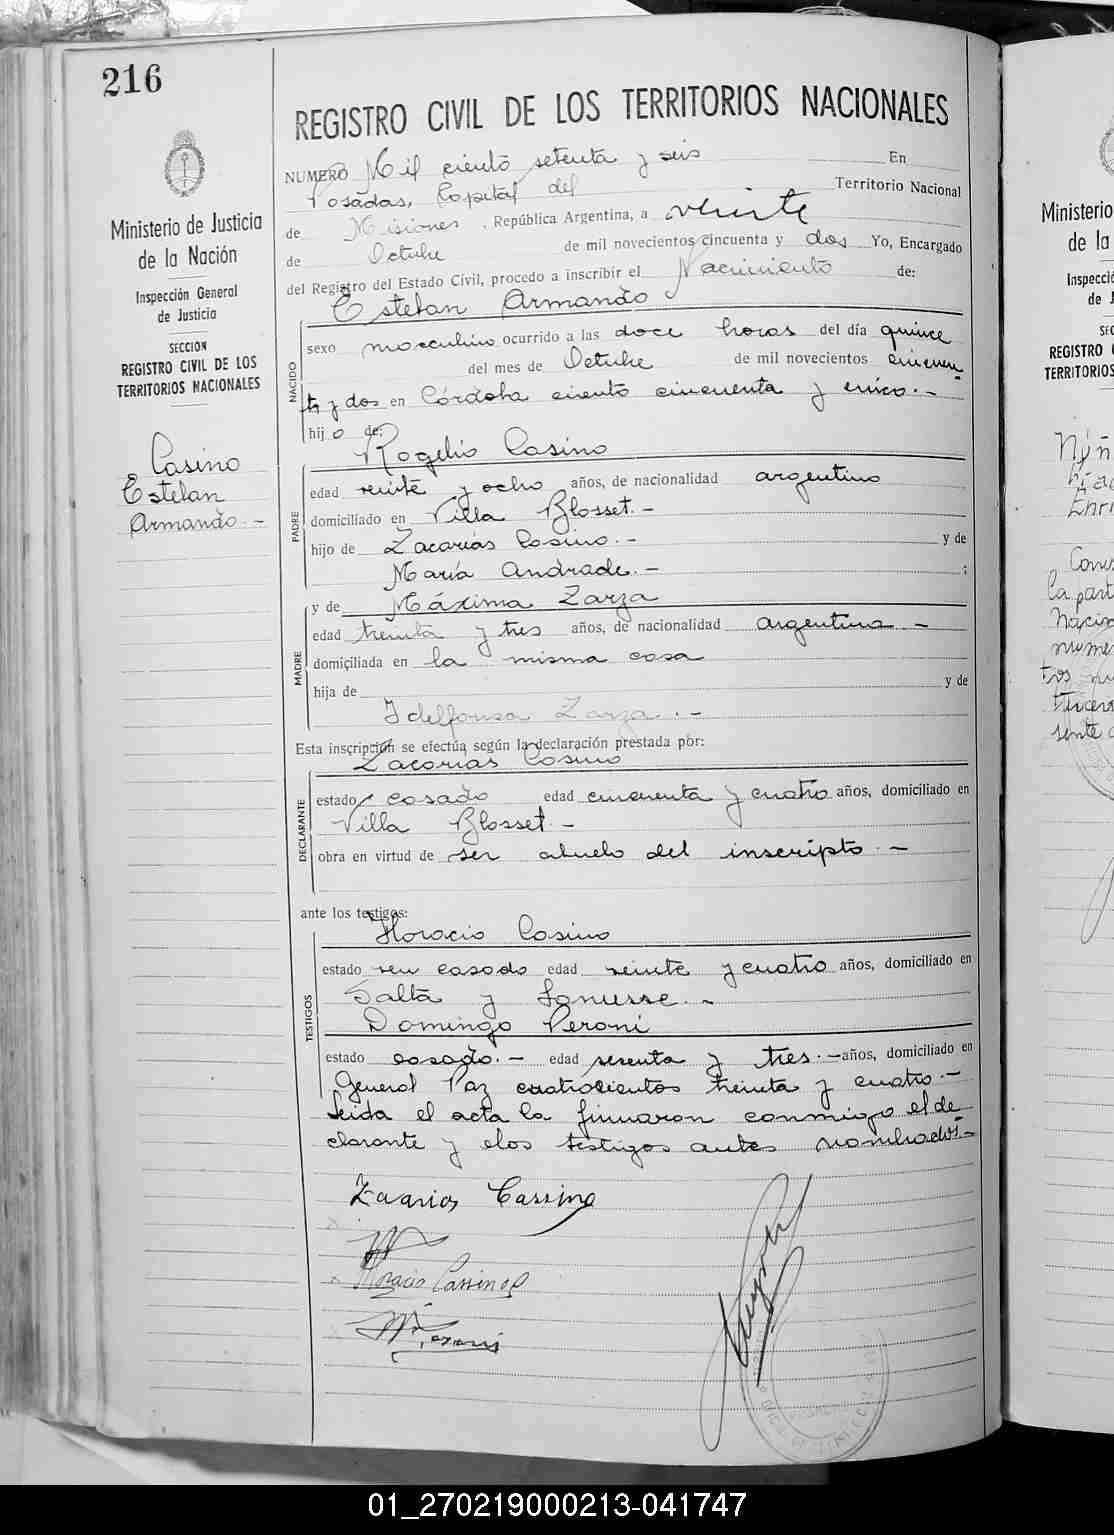 216
Ministerio de Justicia
de la Nación
Inspección General
de Justicia
SECCION
REGISTRO CIVIL DE LOS
TERRITORIOS NACIONALES
Casino
Esteban
Armando.-
REGISTRO CIVIL DE LOS TERRITORIOS NACIONALES
NUMERO Mil ciento setenta y seis En
Posadas, Capital del Territorio Nacional
de Misiones, República Argentina, a veinte
de Octubre de mil novecientos cincuenta y dos Yo, Encargado
del Registro del Estado Civil, procedo a inscribir el Nacimiento de:
Esteban Armando
NACIDO
sexo masculino ocurrido a las doce horas del día quince
del mes de Octubre de mil novecientos cincuen-
ta y dos en Córdoba ciento cincuenta y cinco.-
hijo de:
Rogelio Casino
PADRE
edad veinte y ocho años, de nacionalidad argentino
domiciliado en Villa Blosset.-
hijo de Zacarías Casino.- y de
María Andrade.- ;
y de Máxima Zarza
MADRE
edad treinta y tres años, de nacionalidad argentina -
domiciliada en la misma casa
hija de y de
Idelfonsa Zarza.-
Esta inscripción se efectúa según la declaración prestada por:
Zacarías Casino
DECLARANTE
estado casado edad cincuenta y cuatro años, domiciliado en
Villa Blosset.-
obra en virtud de ser abuelo del inscripto.-
ante los testigos:
Horacio Casino
TESTIGOS
estado casado edad veinte y cuatro años, domiciliado en
Salta y Lanusse.-
Domingo Peroni
estado casado.- edad sesenta y tres.- años, domiciliado en
General Paz cuatrocientos treinta y cuatro.-
Leida el acta la firmaron conmigo el de
clarante y los testigos antes nombrados.-
Zacarias Cassino
Horacio Cassino
Peroni
Ministerio
de la
Inspecci
de J
SEC
REGISTRO
TERRITORIOS
La part
nume
sente
01_270219000213-041747